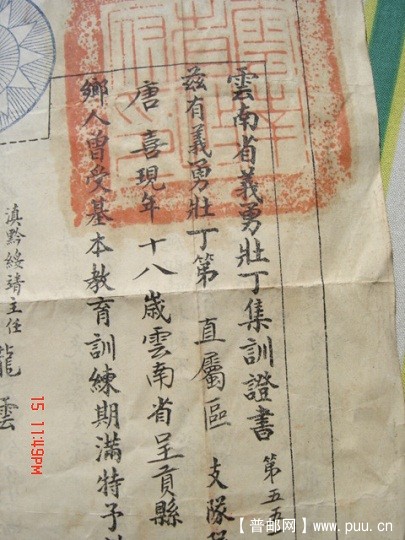 雲南省義勇壯丁集訓證書 第五五
茲有義勇壯丁第 直屬區 支隊
唐喜現年十八歲雲南省呈貢縣
鄉人曾受基本教育訓練期滿特予
滇黔綏靖主任 龍雲
15 11:49PM
【普邮网】www.puu.cn